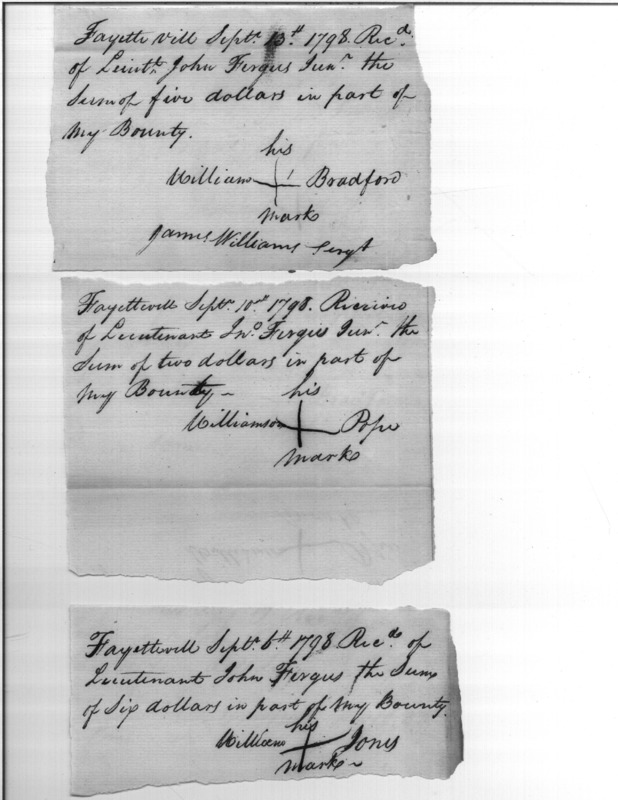 Fayette vill Septr. 13th. 1798. Recd.
of Leiutt. John Fergus Junr. the
Sum of five dollars in part of
My Bounty.
his
William + Bradford
Mark
James Williams Sergt
Fayettevill Septr. 10th 1798. Received
of Lieutenant Jno. Fergus Junr. the
Sum of two dollars in part of
My Bounty -
his
Williamson + Pope
Mark
Fayettevill Septr. 6th 1798 Recd. of
Lieutenant John Fergus the Sum
of Six dollars in part of My Bounty.
his
William + Jones
Mark